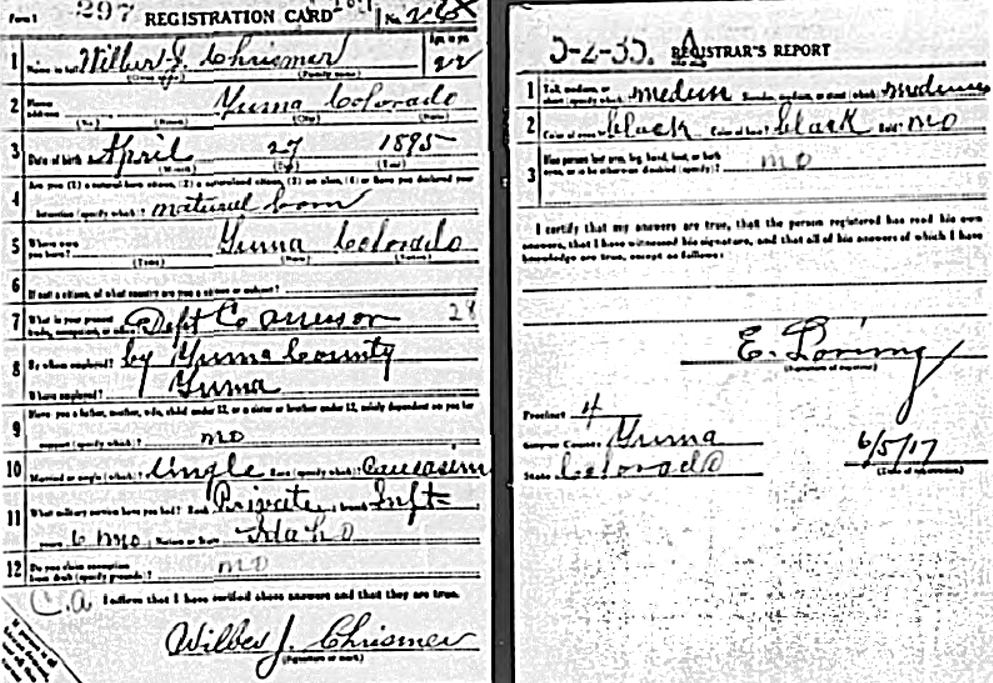 Form 1 297 REGISTRATION CARD No.
Age, in yrs.
1 Name in full Wilber J. Chrismer 22
(Given name) (Family name)
2 Home address Yuma Colorado
(No.) (Street) (City) (State)
3 Date of birth April 27 1895
(Month) (Day) (Year)
4 Are you (1) a natural-born citizen, (2) a naturalized citizen, (3) an alien, (4) or have you declared your
intention (specify which)? natural born
5 Where were you born? Yuma Colorado
(Town) (State) (Nation)
6 If not a citizen, of what country are you a citizen or subject?
7 What is your present trade, occupation, or office? Dept Co assessor 28
8 By whom employed? by Yuma County
Where employed? Yuma
9 Have you a father, mother, wife, child under 12, or a sister or brother under 12, solely dependent on you for
support (specify which)? no
10 Married or single (which)? Single Race (specify which)? Caucasian
11 What military service have you had? Rank Private ; branch Inft
years 6 mo ; Nation or State Idaho
12 Do you claim exemption from draft (specify grounds)? no
C.a I affirm that I have verified above answers and that they are true.
Wilber J. Chrismer
(Signature or mark)
5-2-35. A REGISTRAR'S REPORT
1 Tall, medium, or short (specify which)? medium Slender, medium, or stout (which)? medium
2 Color of eyes? black Color of hair? black Bald? no
3 Has person lost arm, leg, hand, foot, or both eyes, or is he otherwise disabled (specify)? no
I certify that my answers are true, that the person registered has read his own
answers, that I have witnessed his signature, and that all of his answers of which I have
knowledge are true, except as follows:
E. Loring
(Signature of registrar)
Precinct 4
City or County Yuma
State Colorado
6/5/17
(Date of registration)